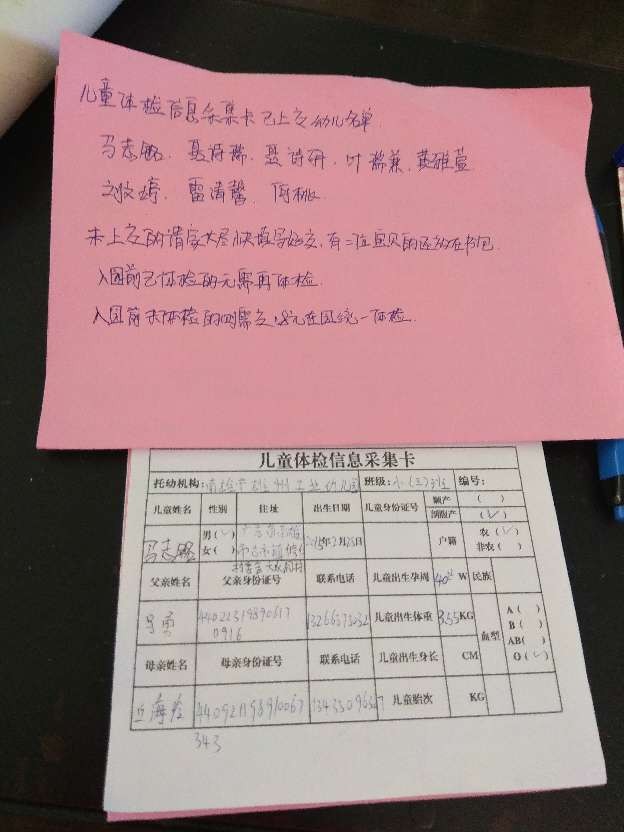 儿童体检信息采集卡已上交幼儿名单
马志鹏、聂诗瑞、聂诗研、叶瑞兼、黄雅萱
刘牧婷、雷清馨、何桃
未上交的请家长尽快填写好交,有二位宝贝的还放在书包.
入园前已体检的无需再体检.
入园前未体检的则需交 元在园统一体检.
儿童体检信息采集卡
托幼机构: 州工业幼儿园 班级:小(三)班 编号:
儿童姓名 性别 住址 出生日期 儿童身份证号 顺产 ( )
剖腹产 (√)
马志鹏 男(√) 2015年2月28日 户籍 农(√)
女( ) 非农( )
父亲姓名 父亲身份证号 联系电话 儿童出生孕周 40 W 民族
儿童出生体重 3.55KG 血型 A( )
B( )
AB( )
O(√)
母亲姓名 母亲身份证号 联系电话 儿童出生身长 CM
儿童胎次 KG
343